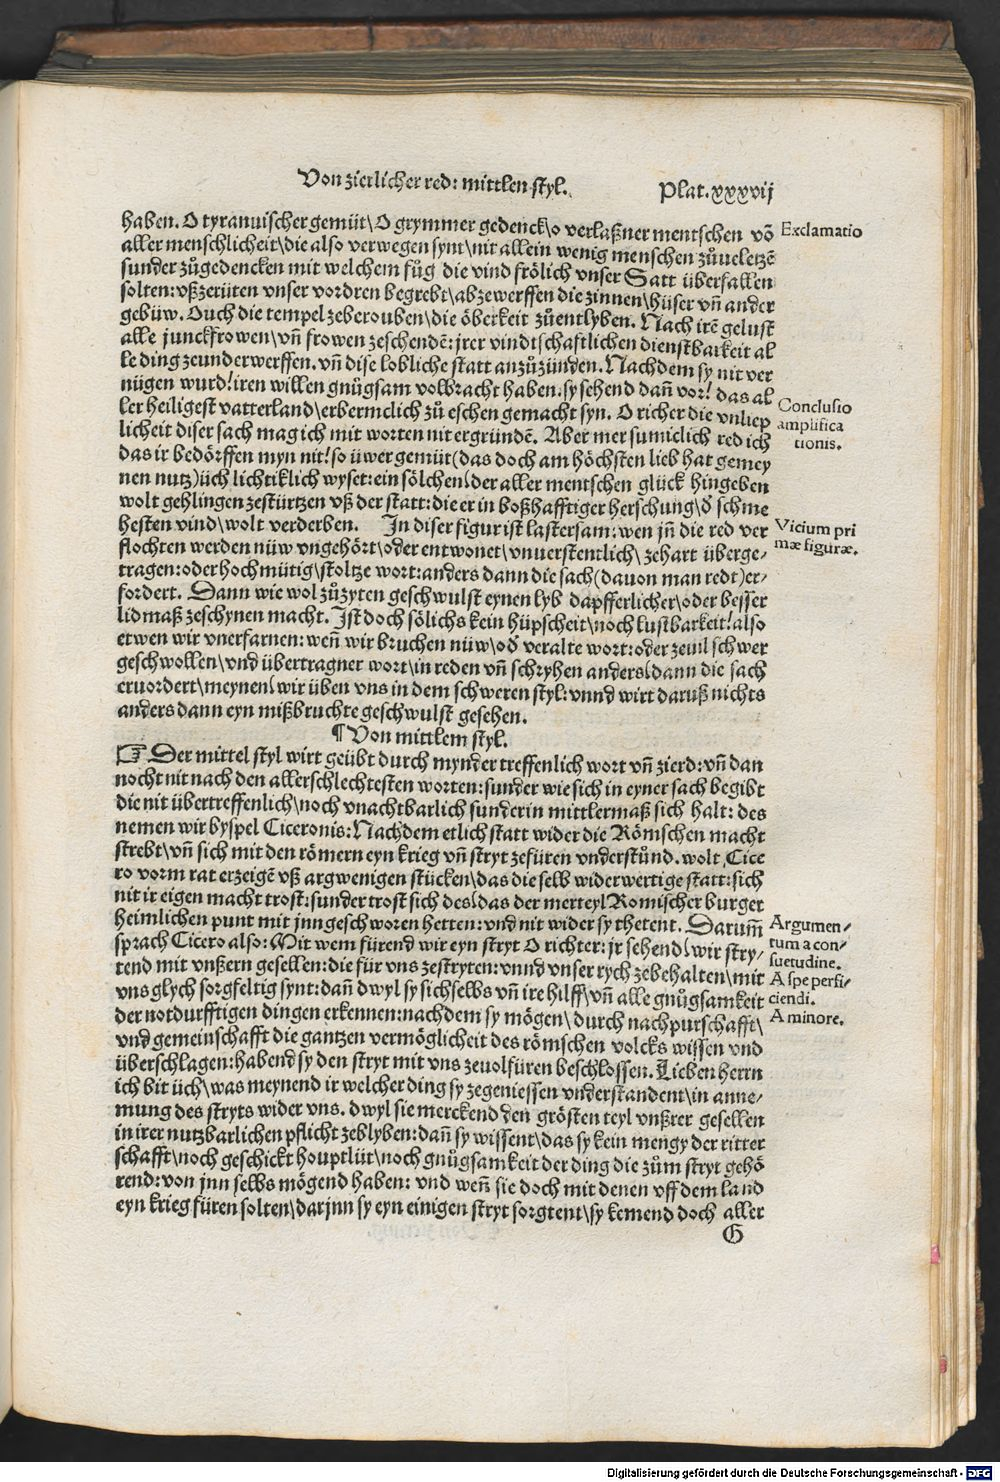 Von zierlicher red: mittlen styl.
Plat. xxxvij
haben. O tyrannischer gemüt\ O grymmer gedenck\ o verlaßner mentschen võ
aller menschlicheit\ die also verwegen synt\ nit allein wenig menschen zůueletzẽ
sunder zůgedencken mit welchem fůg die vind frölich vnser Satt überfallen
solten: vßzerüten vnser vordren begrebt\ abzewerffen die zinnen\ hüser vñ ander
gebüw. Ouch die tempel zeberouben\ die öberkeit zůentlyben. Nach irẽ gelust
alle junckfrowen\ vñ frowen zeschendẽ: jrer vindtschaftlichen dienstbarkeit al
le ding zeunderwerffen. vñ dise lobliche statt anzůzünden. Nachdem sy nit ver
nügen wurd! iren willen gnůgsam volbracht haben. sy sehend dañ vor! das al
ler heiligest vatterland\ erbermclich zů eschen gemacht syn. O richer die vnliep
licheit diser sach mag ich mit worten nit ergründẽ. Aber mer sumiclich red ich
das ir bedörffen myn nit! so üwer gemüt (das doch am höchsten lieb hat gemey
nen nutz) üch lichtiklich wyset: ein sölchen\ der aller mentschen glück hingeben
wolt gehlingen zestürtzen vß der statt: die er in boßhafftiger herschung\ ð schme
hesten vind\ wolt verderben. In diser figur ist lastersam: wen jñ die red ver
flochten werden nüw vngehört\ oder entwonet\ vnuerstentlich\ zehart überge-
tragen: oder hochmütig\ stoltze wort: anders dann die sach (dauon man redt) er-
fordert. Dann wie wol zůzyten geschwulst eynen lyb dapfferlicher\ oder besser
lidmaß zeschynen macht. Ist doch sölichs kein hüpscheit\ noch lustbarkeit! also
etwen wir vnerfarnen: weñ wir bruchen nüw\ oð veralte wort: oder zeuil schwer
geschwollen\ vnd übertragner wort\ in reden vñ schryhen anders\ dann die sach
eruordert\ meynen\ wir üben vns in dem schweren styl: vnnd wirt daruß nichts
anders dann eyn mißbruchte geschwulst gesehen.
¶ Von mittlem styl.
☞ Der mittel styl wirt geübt durch mynder treffenlich wort vñ zierd: vñ dan
nocht nit nach den allerschlechtesten worten: sunder wie sich in eyner sach begibt
die nit übertreffenlich\ noch vnachtbarlich sunder in mittlermaß sich halt: des
nemen wir byspel Ciceronis: Nachdem etlich statt wider die Römschen macht
strebt\ vñ sich mit den römern eyn krieg vñ stryt zefüren vnderstůnd. wolt Cice
ro vorm rat erzeigẽ vß argwenigen stücken\ das die selb widerwertige statt: sich
nit ir eigen macht trost: sunder trost sich des\ das der merteyl Romischer burger
heimlichen punt mit jnn geschworen hetten: vnd nit wider sy thetent. Darum̃
sprach Cicero also: Mit wem fürend wir eyn stryt O richter: jr sehend\ wir stry-
tend mit vnßern gesellen: die für vns zestryten: vnnd vnser rych zebehalten\ mit
vns glych sorgfeltig synt: dañ dwyl sy sich selbs vñ ire hilff\ vñ alle gnůgsamkeit
der notdurfftigen dingen erkennen: nachdem sy mögen\ durch nachpurschafft\
vnd gemeinschafft die gantzen vermöglicheit des römschen volcks wissen vnd
überschlagen: habend sy den stryt mit vns zeuolfüren beschlossen. Lieben herrn
ich bit üch\ was meynend ir welcher ding sy zegeniessen vnderstandent\ in anne-
mung des stryts wider vns. dwyl sie merckend den grösten teyl vnßrer gesellen
in irer nutzbarlichen pflicht zeblyben: dañ sy wissent\ das sy kein mengy der ritter
schafft\ noch geschickt houptlüt\ noch gnůgsamkeit der ding die zům stryt gehö
rend: von jnn selbs mögend haben: vnd weñ sie doch mit denen vff dem land
eyn krieg füren solten\ darjnn sy eyn einigen stryt sorgtent\ sy kemend doch aller
G
Exclamatio
Conclusio
amplifica
tionis.
Vicium pri
mæ figuræ.
Argumen-
tum a con-
suetudine.
A spe perfi-
ciendi.
A minore.
Digitalisierung gefördert durch die Deutsche Forschungsgemeinschaft - DFG